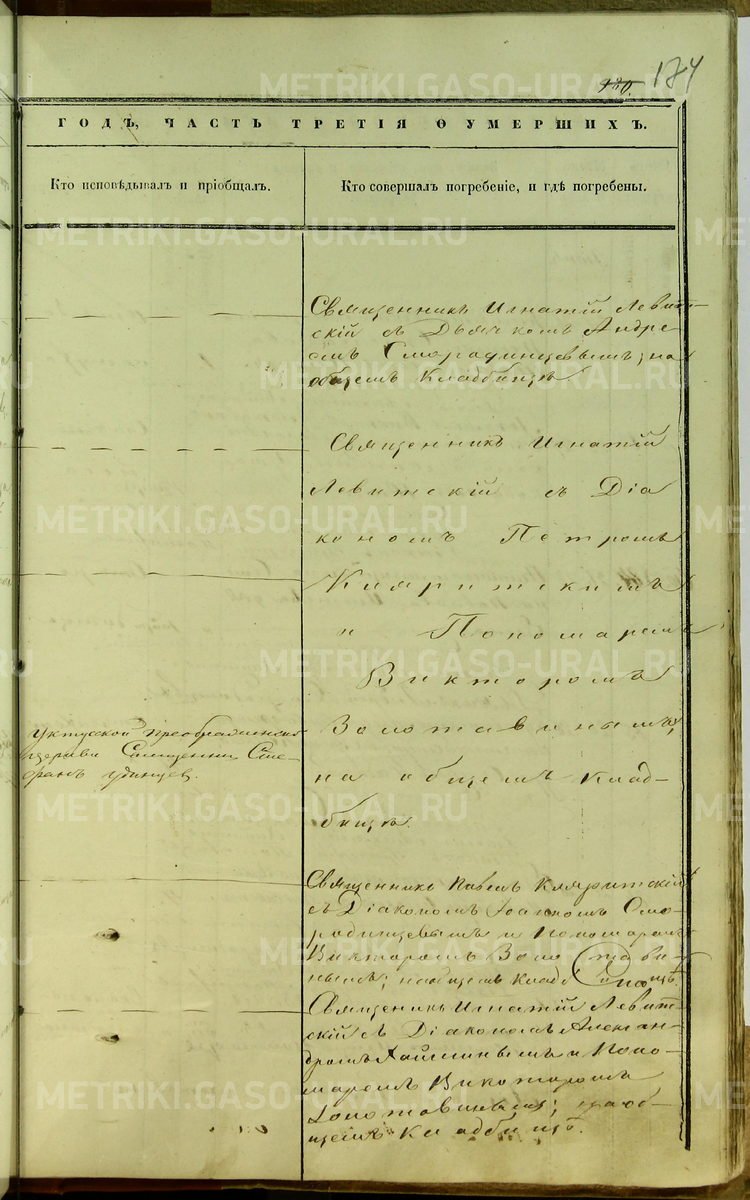 930. 174
ГОДЪ, ЧАСТЬ ТРЕТІЯ О УМЕРШИХЪ.
Кто исповѣдывалъ и пріобщалъ.
Кто совершалъ погребеніе, и гдѣ погребены.
Священникъ Игнатій Левит-
скій съ Дьячкомъ Андре-
емъ Смородинцовымъ, на
общемъ Кладбищѣ
Священникъ Игнатій
Левитскій съ Діа
кономъ Петромъ
Кляритскимъ
и Пономаремъ
Викторомъ
Золотавинымъ,
на общемъ Клад-
бищѣ.
Уктуской Преображенской
церкви Священникъ Сте-
фанъ Удинцев.
Священникъ Павелъ Кляритскій
съ Діакономъ Іоанномъ Смо-
родинцевымъ и Пономаремъ
Викторомъ Золотавин-
нымъ; на общемъ Кладбищѣ.
Священникъ Игнатій Левит-
скій съ Діакономъ Алексан-
дромъ и Поно-
маремъ Викторомъ
Золотавинымъ; на об-
щемъ Кладбищѣ.
METRIKI.GASO-URAL.RU